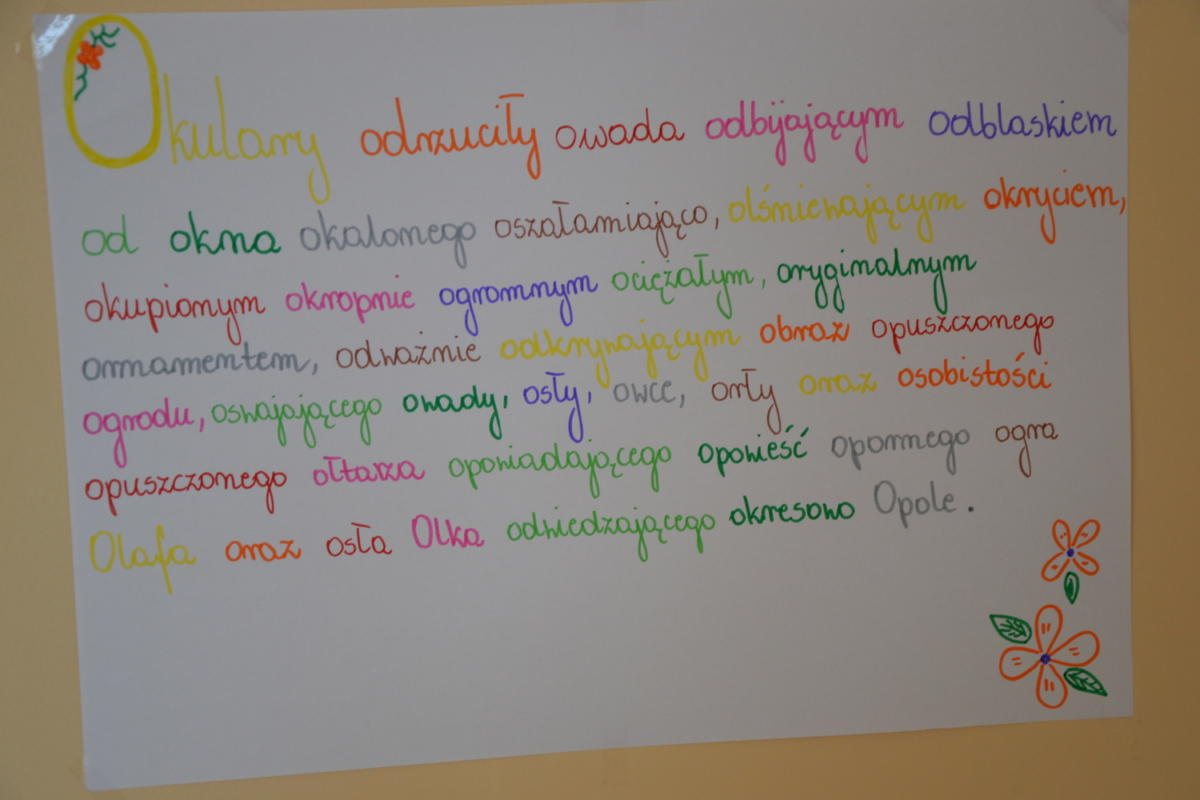 Okulary odrzuciły owada odbijającym odblaskiem
od okna okalonego oszałamiająco, olśniewającym okryciem,
okupionym okropnie ogromnym ociężałym, oryginalnym
ornamentem, odważnie odkrywającym obraz opuszczonego
ogrodu, oswajającego owady, osły, owce, orły oraz osobistości
opuszczonego ołtarza opowiadającego opowieść opornego ogra
Olafa oraz osła Olka odwiedzającego okresowo Opole.